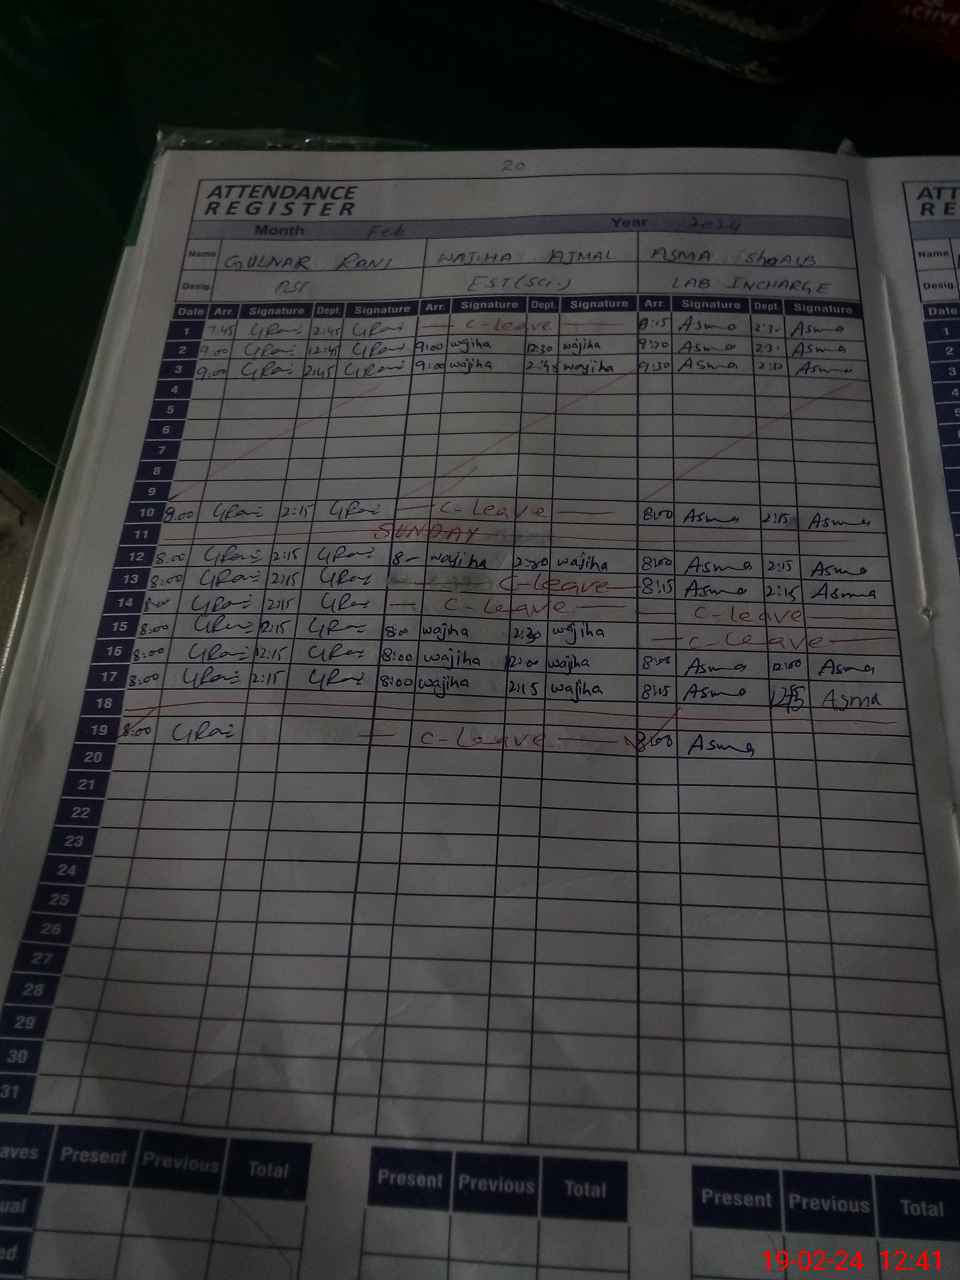 ACTIVE
20
ATTENDANCE
REGISTER
Month Feb Year 2024
Name GULNAR RANI WAJIHA AJMAL ASMA ShoAIB
Desig. EST(Sci.) LAB INCHARGE
Date Arr. Signature Dept. Signature Arr. Signature Dept. Signature Arr. Signature Dept. Signature
1 7:45 GRani 2:45 GRani — C-Leave — 8:15 Asma 2:30 Asma
2 9:00 GRani 12:45 GRani 9:00 wajiha 12:30 wajiha 9:30 Asma 2:30 Asma
3 9:00 GRani 2:45 GRani 9:00 wajiha 2:45 wajiha 9:30 Asma 2:30 Asma
4
5
6
7
8
9
10 8:00 GRani 2:15 GRani — C-Leave — 8:00 Asma 2:15 Asma
11 SUNDAY
12 8:00 GRani 2:15 GRani 8- wajiha 2:30 wajiha 8:00 Asma 2:15 Asma
13 8:00 GRani 2:15 GRani — C-Leave — 8:15 Asma 2:15 Asma
14 8:00 GRani 2:15 GRani — C-Leave — — C-Leave
15 8:00 GRani 2:15 GRani 8:00 wajiha 2:30 wajiha — C-Leave —
16 8:00 GRani 12:15 GRani 8:00 wajiha 12:00 wajiha 8:00 Asma 12:00 Asma
17 8:00 GRani 2:15 GRani 8:00 wajiha 2:15 wajiha 8:15 Asma Asma
18
19 8:00 GRani — C-Leave — 8:00 Asma
20
21
22
23
24
25
26
27
28
29
30
31
aves Present Previous Total Present Previous Total Present Previous Total
ual
ed
ATT
RE
Name
Desig.
Date
1
2
3
4
5
6
7
8
9
10
11
12
13
14
15
16
17
18
19
20
21
22
23
24
25
26
27
19-02-24 12:41